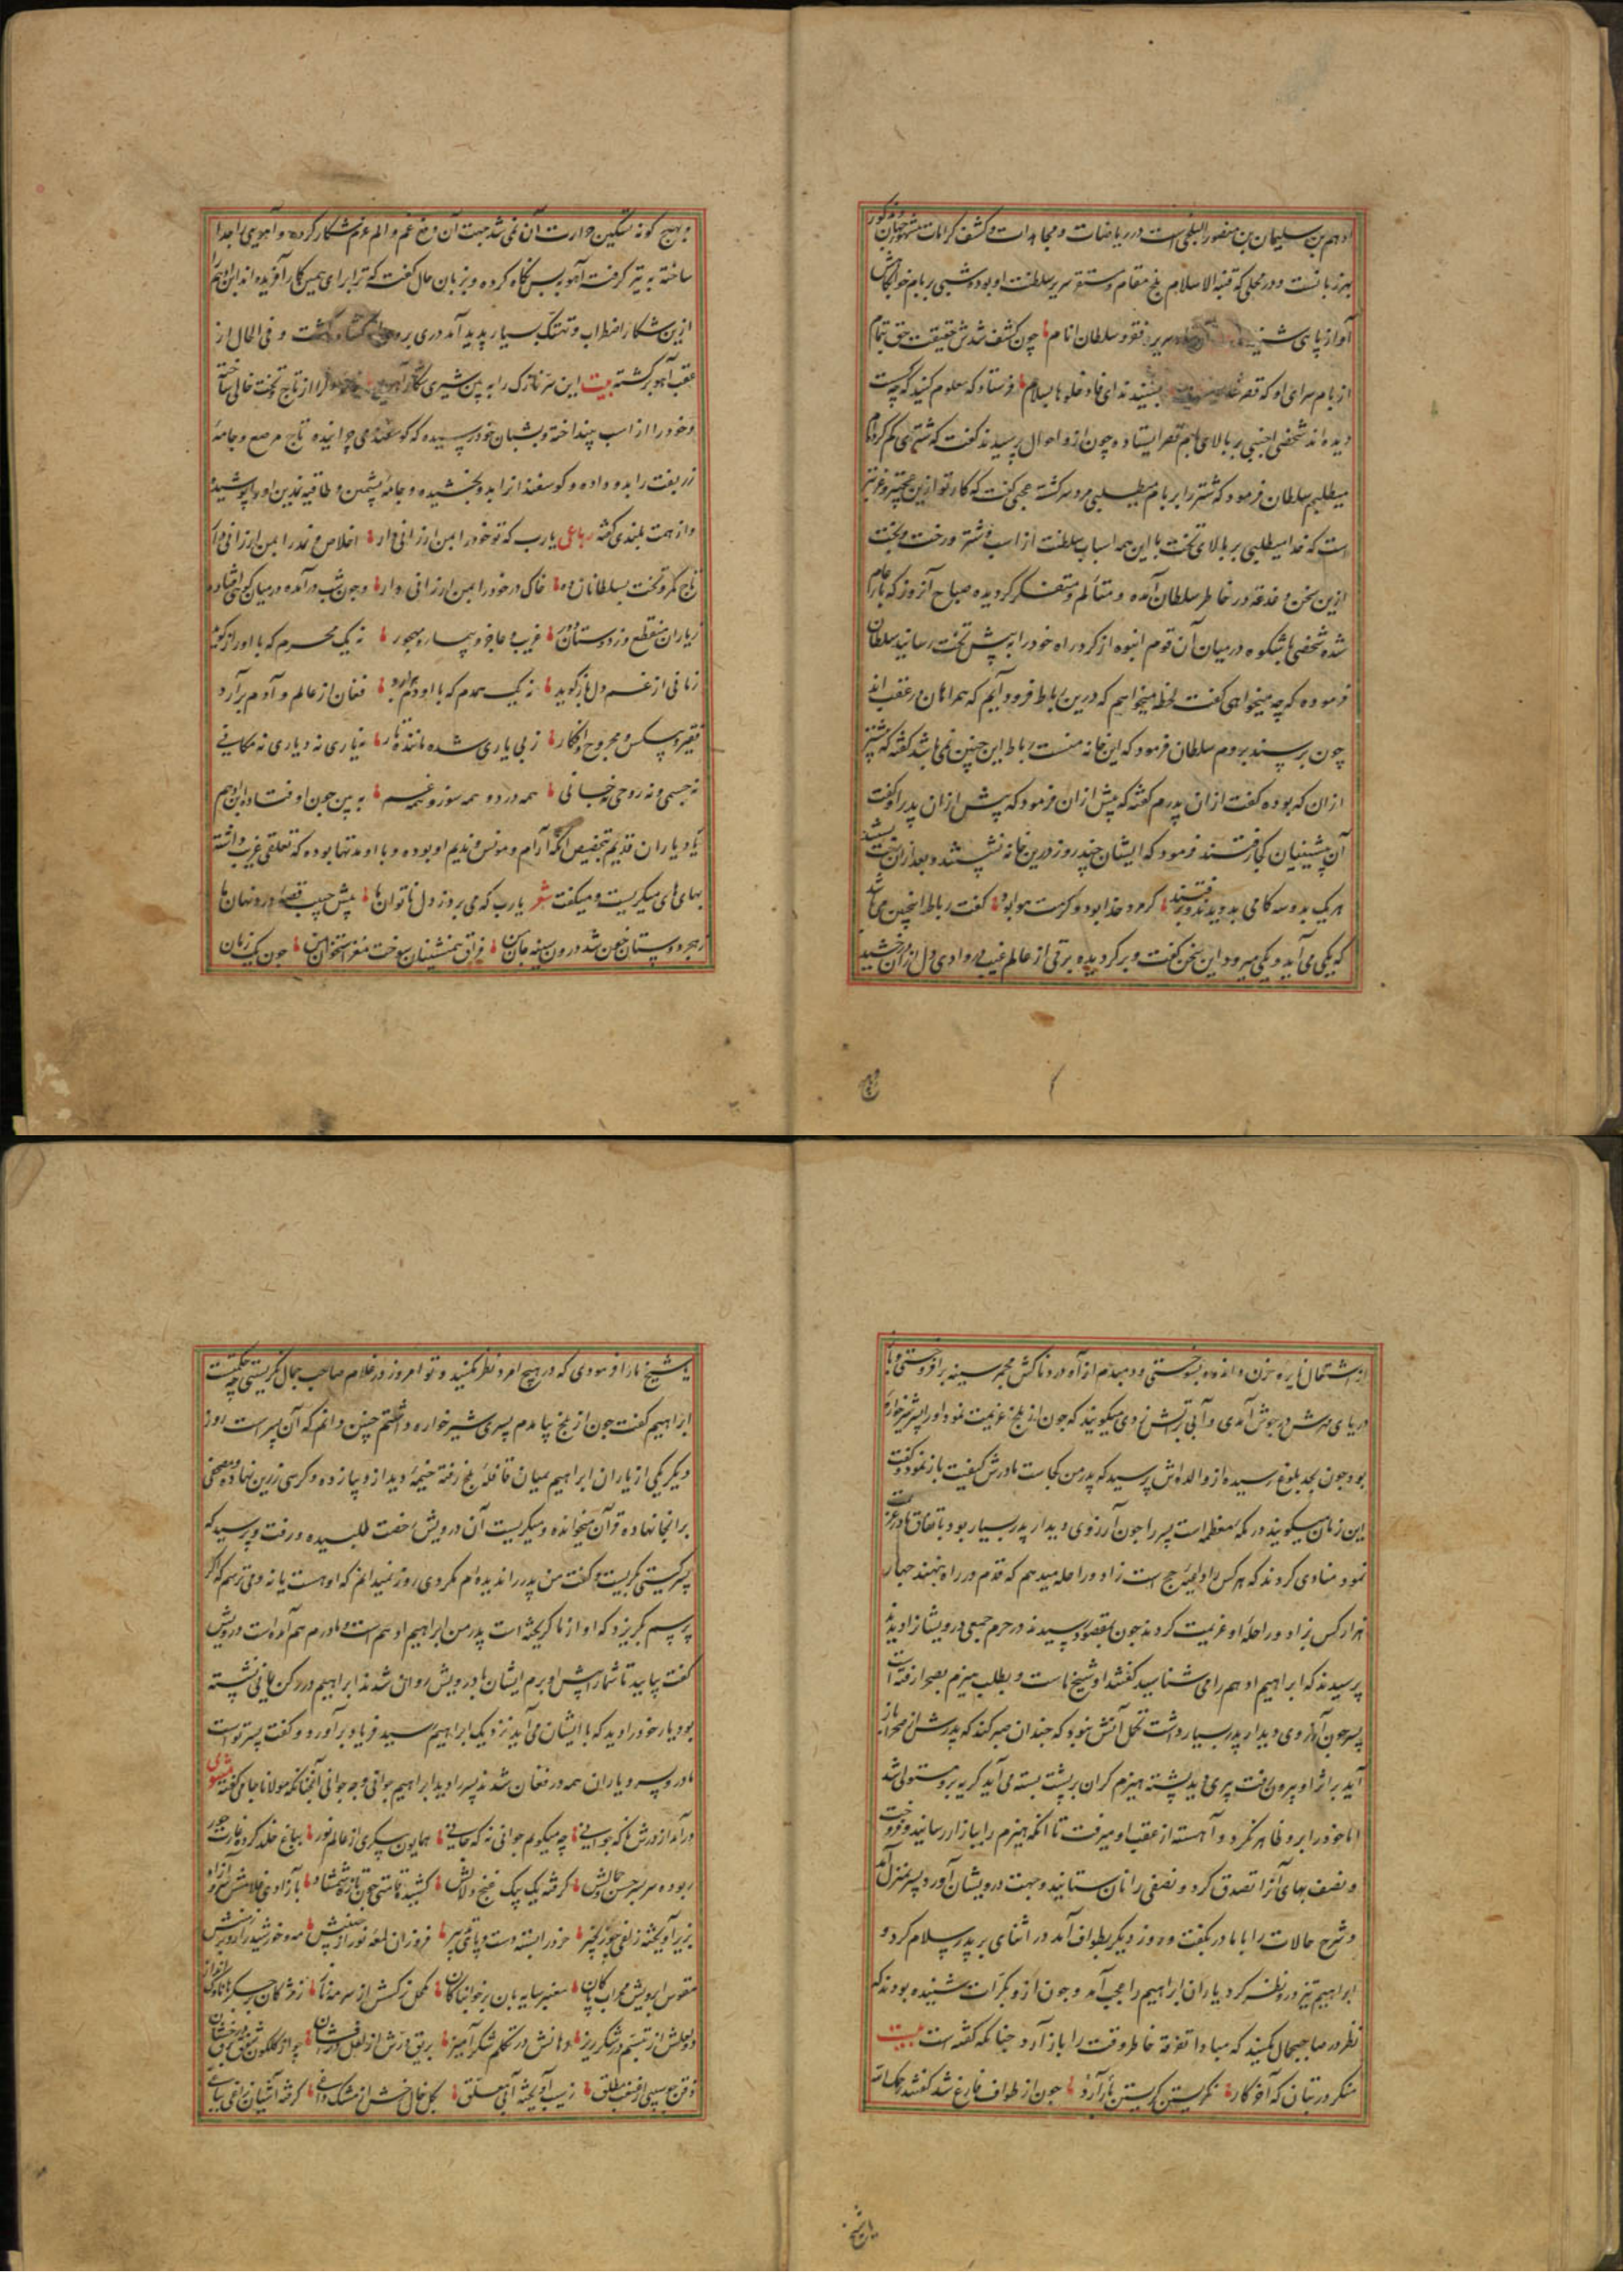 ادهم بن سلیمان بن منصور البلخی است در ریاضات و مجاهدات و کشف کرامات مشهور جهان و مذکور
هر زبانست و در محلی که قبة الاسلام بلخ مقام و مستقر سریر سلطنت او بود شبی بر بام خوابگاهش
آواز پای شنید سریر فقر و سلطان انام چون کشف شدش حقیقت حق بتمام
از بام سرای او که قصر بشنید ندای فادخلوها بسلام فرستاد که معلوم کنید که چه کست
دیده‌اند شخصی اجنبی بر بالای بام قصر ایستاده و چون ازو احوال پرسیدند گفت که شتری گم کرده‌ام
میطلبم سلطان فرمود که شتر را بر بام میطلبی مرد سرگشته عجبی گفت که کار تو ازین عجبتر و غریبتر
است که خدا میطلبی بر بالای تخت با این همه اسباب سلطنت از اسب و شتر و رخت و بخت
ازین سخن دغدغه در خاطر سلطان آمده و متألم و متفکر گردیده صباح آنروز که بار عام
شده شخصی باشکوه درمیان آن قوم انبوه از گرد راه خود را به پیش تخت رسانید سلطان
فرموده که چه میخواهی گفت لحظه میخواهیم که درین رباط فرود آیم که همراهان در عقب‌اند
چون برسند بروم سلطان فرمود که این خانه منست رباط این چنین نمی‌باشد گفته که پیشتر
ازان که بوده گفت ازان پدرم گفته که پیش ازان فرمود که پیش ازان پدر او گفت
آن پیشینیان کجا رفتند فرمود که ایشان چند روز درین خانه نشستند و بعد ازان رخت بستند
هریک بدو سه گامی بدویدند و برفتند کرد و خدا بود و گفت رباط اینچنین می‌باشد
که یکی می‌آید و یکی میرود این سخن گفت و برگردیده برقی از عالم غیب در وادی دل ازان درخشید
و بهیچ گونه تسکین حرارت آن نمی‌شد جهت آن دفع غم و الم عزم شکار کرده و آهویی را جدا
ساخته به تیر گرفت آهو به پس نگاه کرده و بزبان حال گفت که ترا برای همین کار آفریده‌اند ابراهیم را
ازین شکار اضطراب و تهتک بسیار پدید آمد دری بروی گشاده گشت و فی الحال از
عقب آهو برگشته بیت این سر نازک را به بین شیری شکار را از تاج و تخت خالی ساخته
و خود را از اسب پیاده انداخته و بشبان خود رسیده که گوسفند می‌چرانیده تاج مرصع و جامهٔ
زربفت را بدو داده و گوسفندانرا بدو بخشیده و جامه پشمین و طاقیه نمدین او را پوشیده
و از همت بلندی گفته رباعی یارب که تو خود را بمن ارزانی دار اخلاص و نمد را بمن ارزانی دار
تاج و کمر و تخت بسلطانان ده خاک در خود را بمن ارزانی دار و چون شب درآمده درمیان کوهی افتاده
ز یاران منقطع وز دوستان دور غریب و عاجز و بیمار و مهجور نه یک محرم که با او راز گوید
زمانی از غم دل باز گوید نه یک همدم که با او دم برآرد فغان از عالم و آدم برآرد
فقیر و بیکس و مجروح و افگار ز بی یاری شده مانده زار نه یاری نه دیاری نه مکانی
نه جسمی و نه روحی نه جانی همه درد و همه سوز و همه غم به بین چون اوفتاده ابن ادهم
یاد یاران قدیم بتخصیص آنکه آرام و مونس و ندیم او بوده و با او مدتها بوده که تعلقی غریب داشته
بهای های میگریست و میگفت شعر یارب که می برد ز دل ناتوان ما پیش حبیب قصهٔ درد نهان ما
ز هجر دوستان خون شد درون سینه جان من فراق همنشینان سوخت مغز استخوان من چون یک زمان
از اشتعال نایره حزن و اندوه بسوختی و دمبدم از آه دردناکش مجمر سینه برافروختی و با
دریای مهرش در جوش آمدی و آبی بر آتش زدی میگویند که چون از بلخ عزیمت نمود او را پسر شیرخواره
بود چون بحد بلوغ رسیده از والده‌اش پرسید که پدر من کجاست مادرش کیفیت باز نمود و گفت
این زمان میگویند در مکه معظمه است پسر را چون آرزوی دیدار پدر بسیار بود باتفاق مادر عزیمت
نمود منادی کردند که هر کس را داعیه حج است زاد و راحله میدهم که قدم در راه نهند چهار
هزار کس بزاد و راحلهٔ او عزیمت کردند چون بمقصد رسیدند در حرم جمعی درویشانرا دیدند
پرسیدند که ابراهیم ادهم را می شناسید گفتند او شیخ ماست و بطلب هیزم بصحرا رفته است
پسر چون آرزوی دیدار پدر بسیار داشت تحمل آنش نبود که چندان صبر کند که پدرش از صحرا باز
آید بر اثر او بیرون رفت پیری دید پشته هیزم گران بر پشت بسته می‌آید گریه برو مستولی شد
اما خود را برو ظاهر نکرد و آهسته از عقب او میرفت تا آنکه هیزم را ببازار رسانید و فروخت
و نصف بهای آنرا تصدق کرد و نصفی را نان ستانید و جهت درویشان آورد پسر بمنزل آمد
و شرح حالات را با مادر بگفت و روز دیگر بطواف آمد در اثنای بر پدر سلام کرد و
ابراهیم تیز درو نظر کرد یاران ابراهیم را عجب آمد و چون ازو بکرات شنیده بودند که
نظر در صاحبجمال مکنید که مبادا تفرقه خاطر وقت را باز آرد چنانکه گفته است بیت
منگر در بتان که آخر کار نگریستن گریستن بار آرد چون از طواف فارغ شد گفتند رحمک الله
یا شیخ ما را فرمودی که در هیچ امرد نظر مکنید و تو امروز در غلام صاحب جمال نگریستی چه حکمتست
ابراهیم گفت چون از بلخ بیامدم پسری شیرخواره داشتم چنین دانم که آن پسر است روز
دیگر یکی از یاران ابراهیم بمیان قافلهٔ بلخ رفته خیمهٔ دید از دیبا زده و کرسی زرین نهاده و مصحفی
بر آنجا نهاده قرآن میخوانده و میگریست آن درویش رخصت طلبیده در رفت و پرسید که
پسر کیستی گریست و گفت من پدر را ندیده‌ام مگر دی روز نمیدانم که او هست یا نه و می ترسم که اگر
پرسم بگریزد که او از ما گریخته است پدر من ابراهیم ادهم است و مادرم هم آمده است درویش
گفت بیایید تا شما را پیش او برم ایشان با درویش روان شدند ابراهیم در رکن یمانی نشسته
بود یار خود را دید که با ایشان می‌آید نزدیک ابراهیم رسید فریاد برآورد و گفت پسر توست
مادر و پسر و یاران همه در فغان شدند پسر را دید ابراهیم جوانی و چه جوانی آنچنانکه مولانا جامی گفته مثنوی
درآمد از درش ناگه جوانی چه میگویم جوانی نه که جانی همایون پیکری از عالم نور بباغ خلد کرده غارت حور
ربوده سر بسر حسن و جمالش گرفته یک بیک غنج و دلالش کشیده قامتی چون تازه شمشاد بآزادی غلامش سرو آزاد
بزیر آویخته زلفی چو زنجیر خرد را بسته دست و پای تدبیر فروزان لمعه نور از جبینش مه و خورشید را رو بر زمینش
مقوس ابرویش محراب پاکان معنبر سایه بان بر خوابناکان مکحل نرگسش از سرمه ناز ز مژگان بر جگرها ناوک انداز
دو لعلش از تبسم در شکر ریز دهانش در تکلم شکر آمیز بریق درش از لعل در افشان چو از گلگون شفق برق درخشان
ذقن چو سیبی از غبغب مطلق ز سیب آویخته آبی معلق بگل خال رخش از مشک داغی گرفته آشیان زاغی بباغی